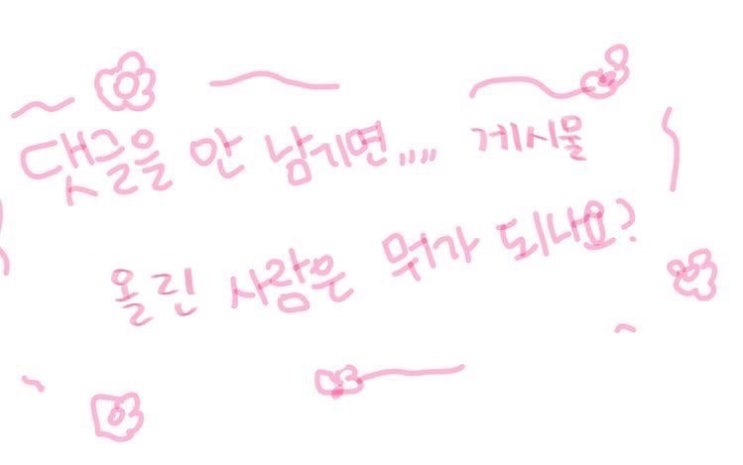 댓글을 안 남기면,,,, 게시물
올린 사람은 뭐가 되나요?